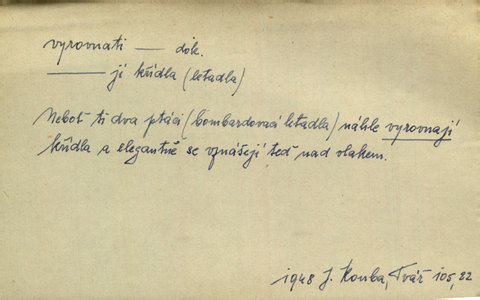 vyrovnati — dok.
——— jí křídla (letadla)
Neboť ti dva ptáci (bombardovací letadla) náhle vyrovnají
křídla a elegantně se vznášejí teď nad vlakem.
1948 J. Kouba, Tvář 105, 22